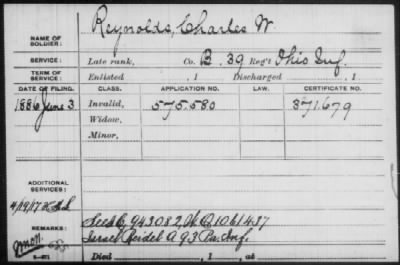 NAME OF SOLDIER: Reynolds, Charles W.
SERVICE: Late rank, Co. B, 39 Reg't Ohio Inf.
TERM OF SERVICE: Enlisted , 1 Discharged , 1
DATE OF FILING. CLASS. APPLICATION NO. CERTIFICATE NO.
1886 June 3 Invalid, 575.580 371.679
Widow,
Minor,
ADDITIONAL SERVICES:
4/19/17
REMARKS: C 943082, 1061437
Israel Reidel A 93 Pa. Inf.
Died , 1 , at